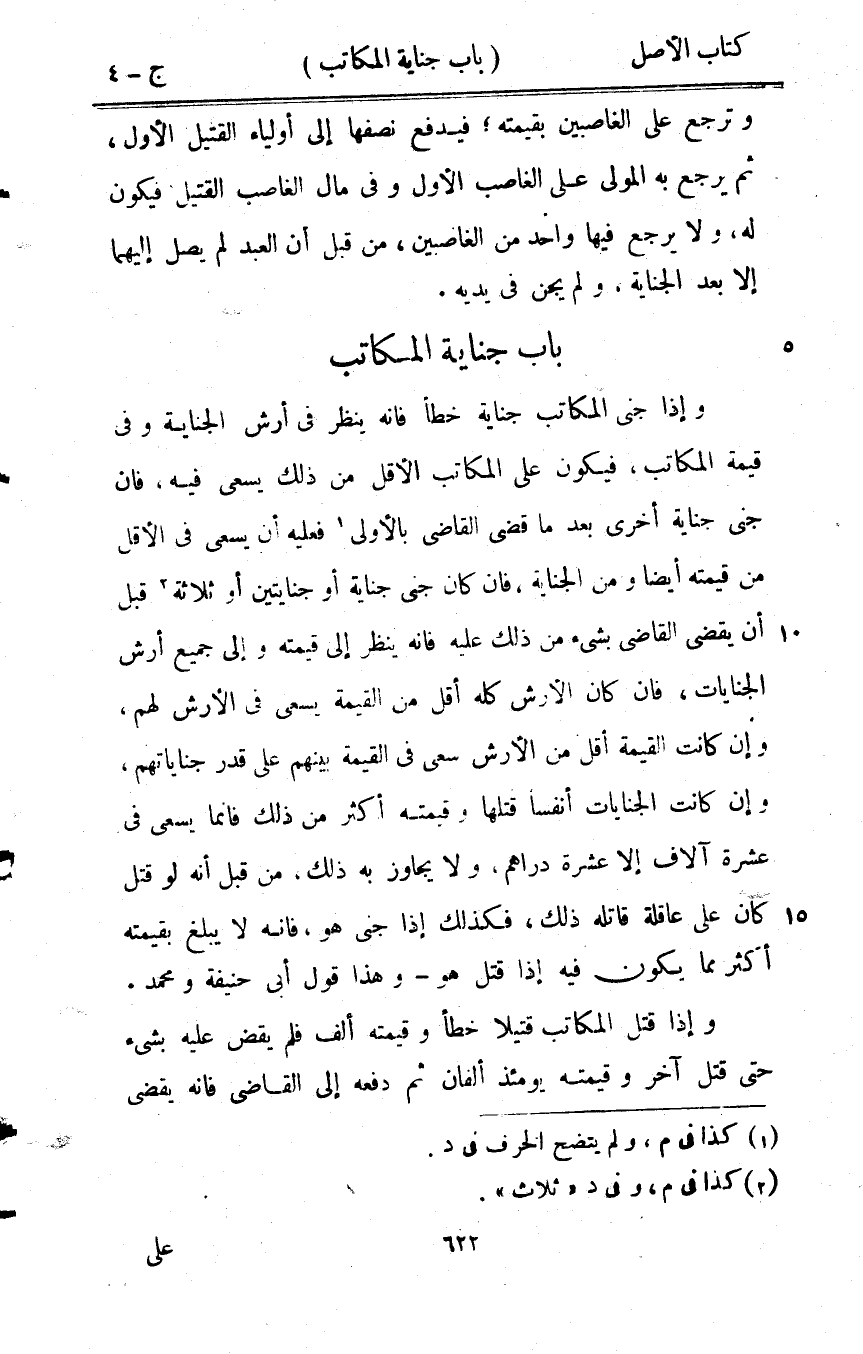 كتاب الأصل ( باب جناية المكاتب ) ج - ٤
و ترجع على الغاصبين بقيمته ؛ فيدفع نصفها إلى أولياء القتيل الأول ،
ثم يرجع به المولى على الغاصب الأول و فى مال الغاصب القتيل فيكون
له، و لا يرجع فيها واحد من الغاصبين ، من قبل أن العبد لم يصل إليهما
إلا بعد الجناية ، و لم يجن فى يديه .
باب جناية المكاتب ٥
و إذا جنى المكاتب جناية خطأ فانه ينظر فى أرش الجناية و فى
قيمة المكاتب ، فيكون على المكاتب الأقل من ذلك يسعى فيه ، فان
جنى جناية أخرى بعد ما قضى القاضى بالأولى ١ فعليه أن يسعى فى الأقل
من قيمته أيضا و من الجناية ، فان كان جنى جناية أو جنايتين أو ثلاثة ٢ قبل
أن يقضى القاضى بشىء من ذلك عليه فانه ينظر إلى قيمته و إلى جميع أرش ١٠
الجنايات ، فان كان الأرش كله أقل من القيمة يسعى فى الأرش لهم ،
و إن كانت القيمة أقل من الأرش سعى فى القيمة بينهم على قدر جناياتهم ،
و إن كانت الجنايات أنفسا قتلها و قيمته أكثر من ذلك فانما يسعى فى
عشرة آلاف إلا عشرة دراهم ، و لا يجاوز به ذلك ، من قبل أنه لو قتل
كان على عاقلة قاتله ذلك ، فكذلك إذا جنى هو ، فانه لا يبلغ بقيمته ١٥
أكثر مما يكون فيه إذا قتل هو - و هذا قول أبى حنيفة و محمد .
و إذا قتل المكاتب قتيلا خطأ و قيمته ألف فلم يقض عليه بشىء
حتى قتل آخر و قيمته يومئذ ألفان ثم دفعه إلى القاضى فانه يقضى
(١) كذا فى م ، و لم يتضح الحرف فى د .
(٢) كذا فى م ، و فى د « ثلاث » .
٦٢٢ على